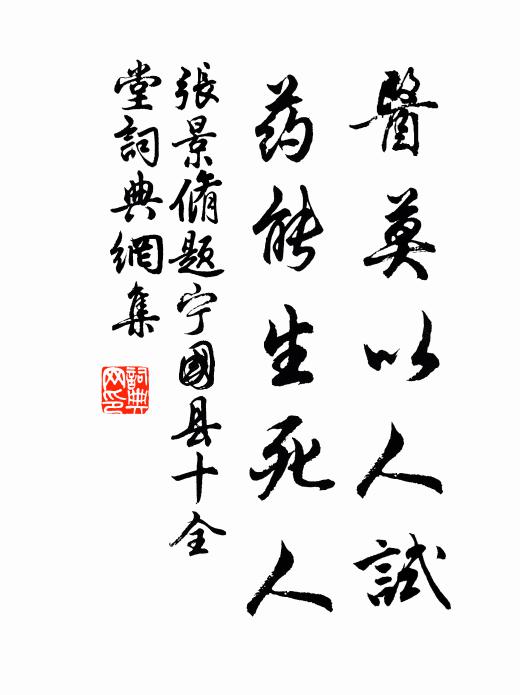 醫莫以人試
药能生死人
張景脩题宁國县十全
堂詞典網集
詞典
网印